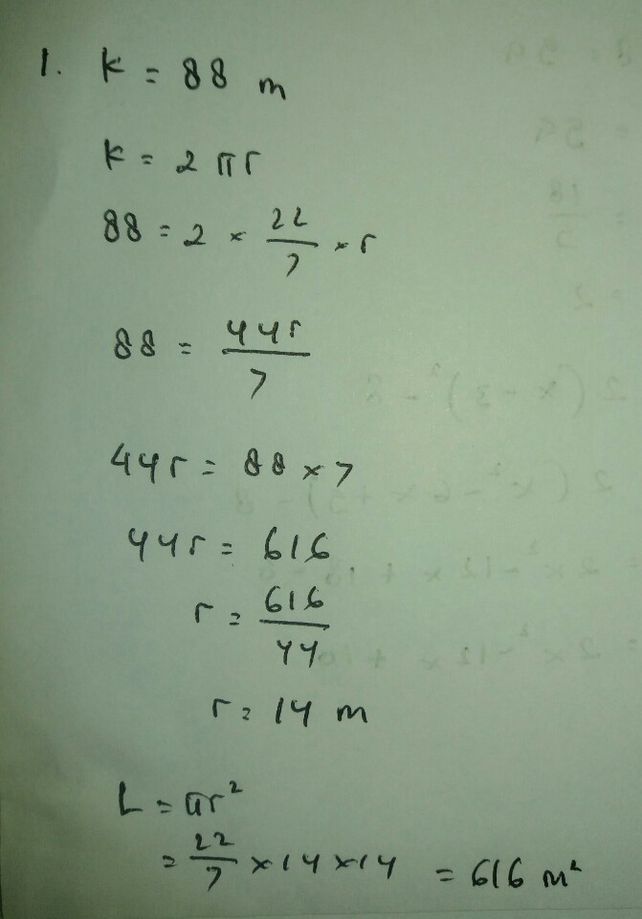 1. K = 88 m
K = 2πr
88 = 2 × 22/7 × r
88 = 44r/7
44r = 88 × 7
44r = 616
r = 616/44
r = 14 m
L = πr²
= 22/7 × 14 × 14 = 616 m²